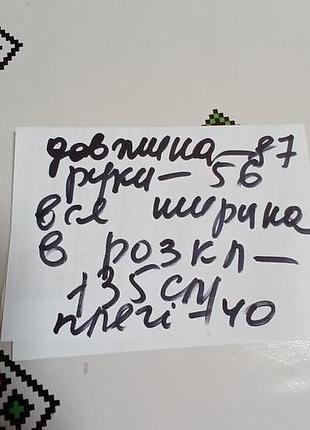 довжина–87
руки–56
вся ширина
в розкл–
135см
плечі–40